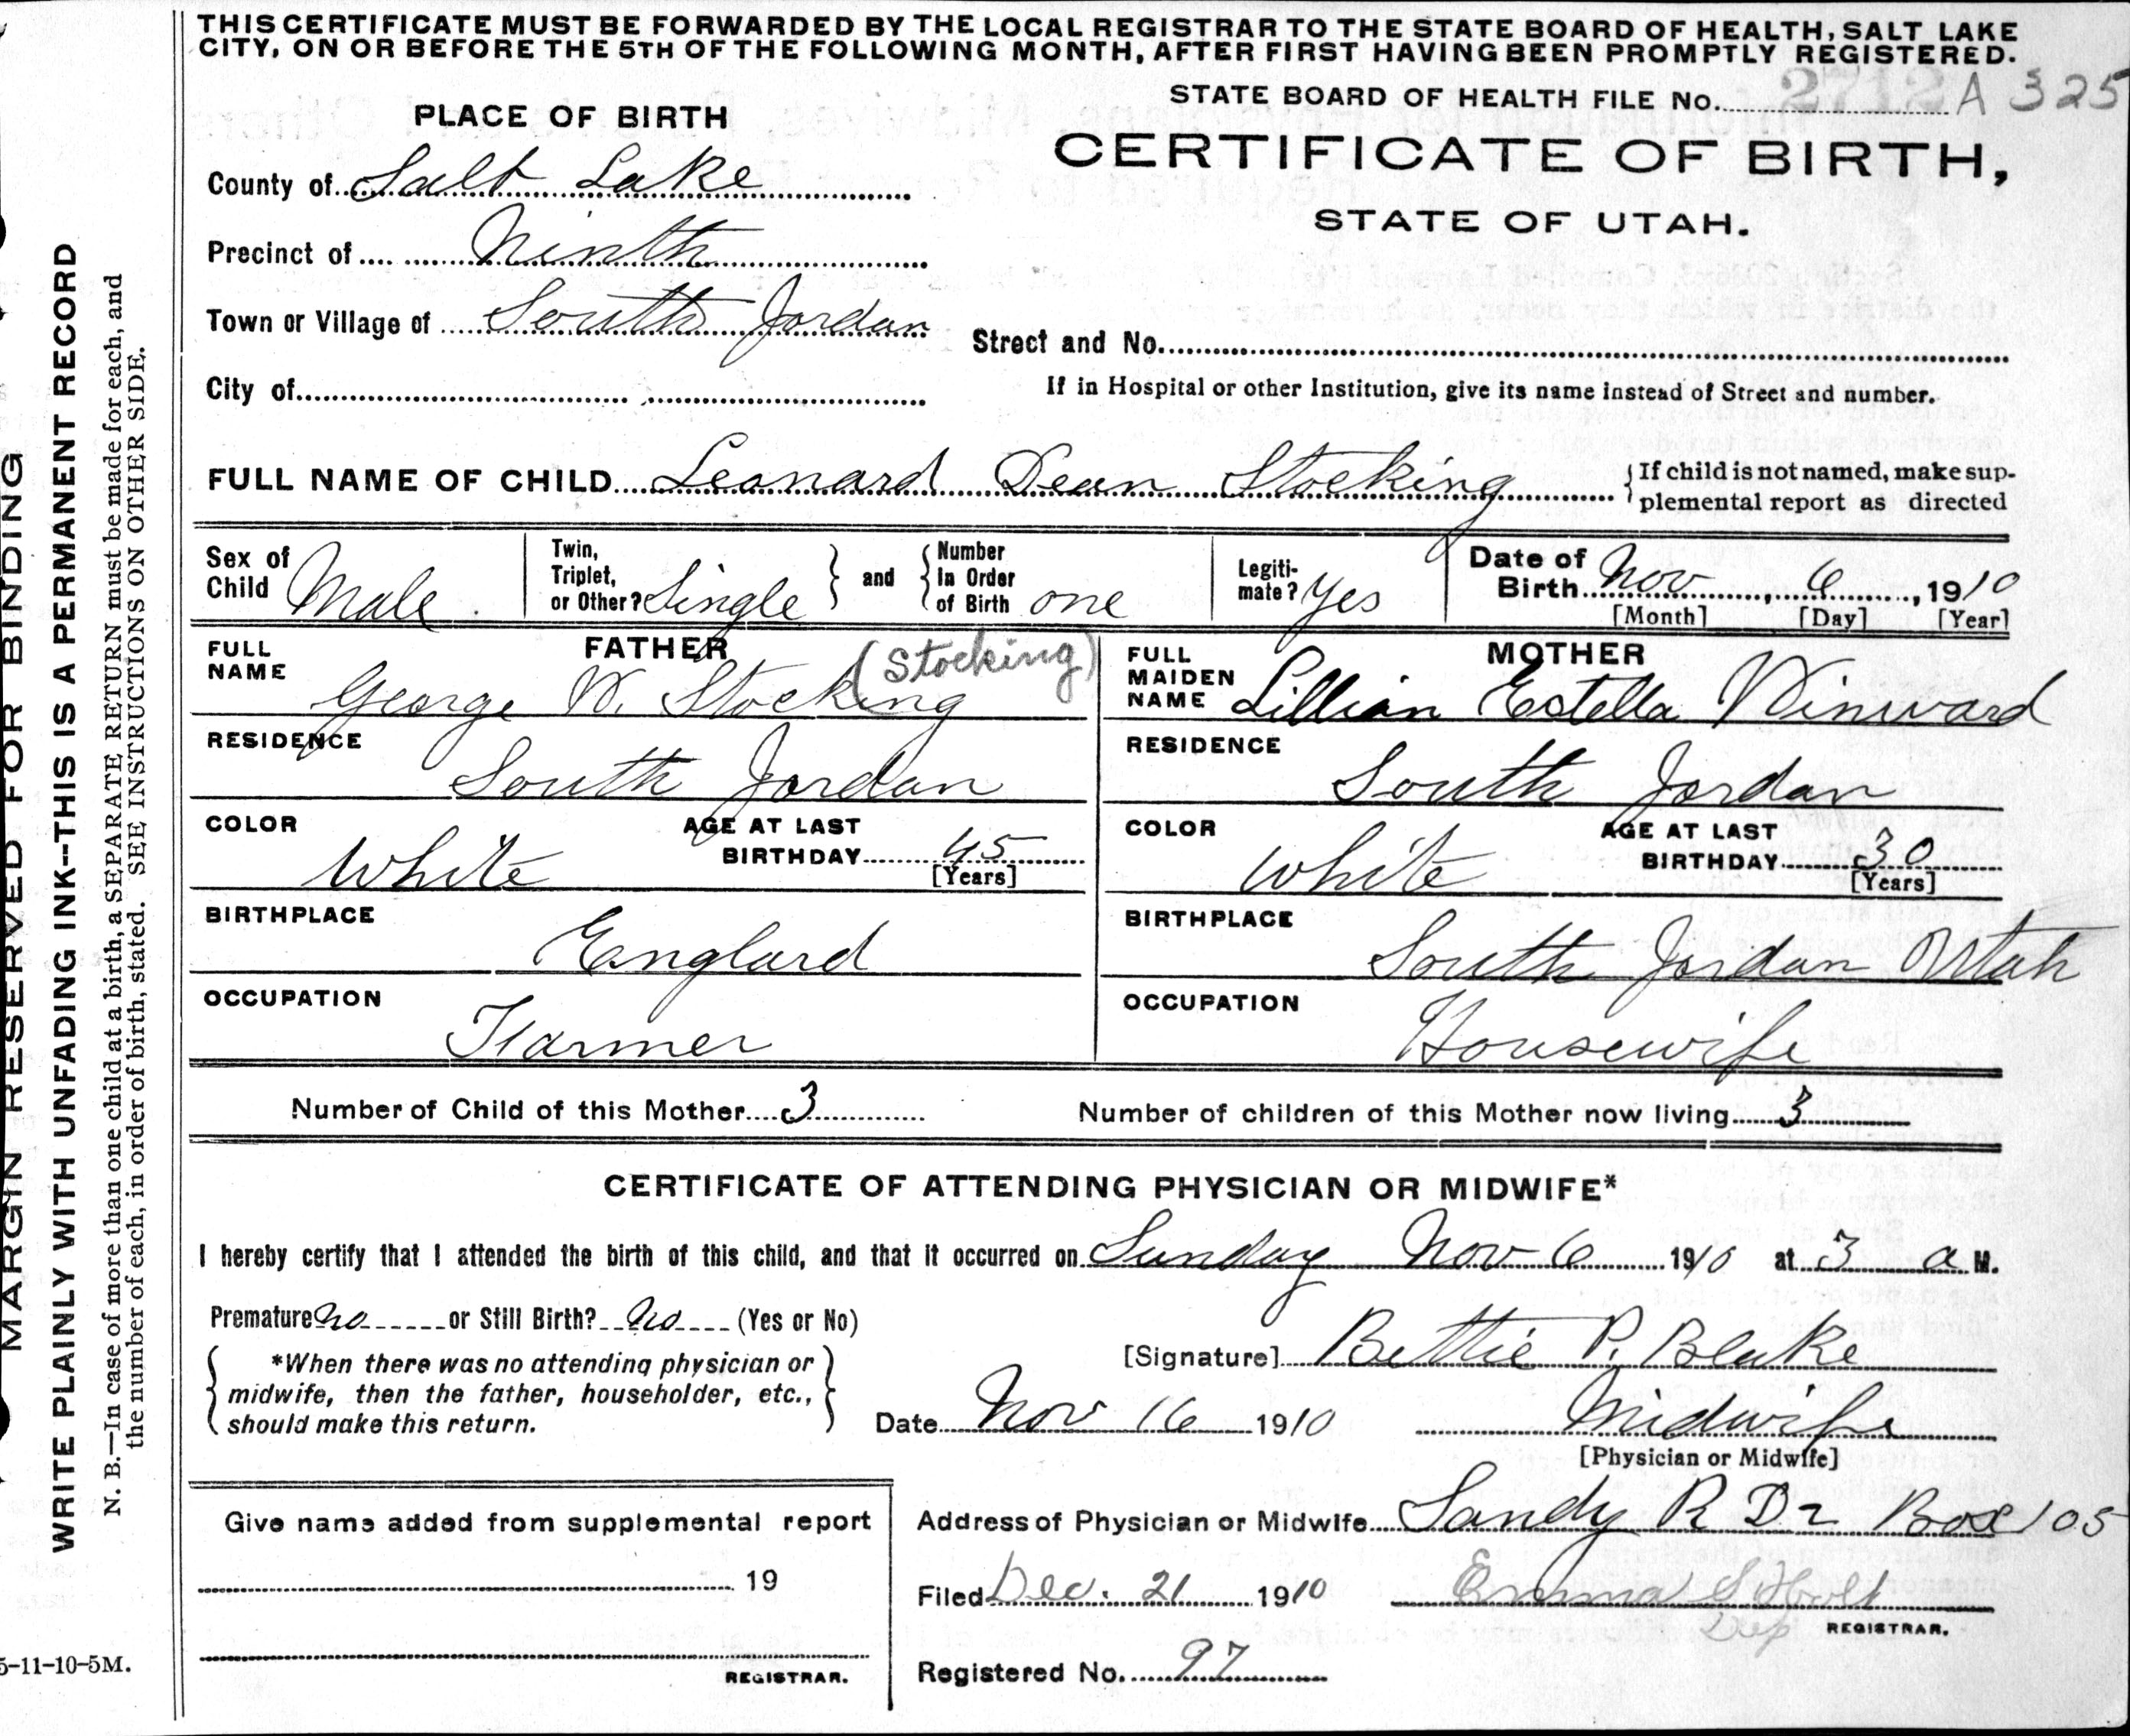 THIS CERTIFICATE MUST BE FORWARDED BY THE LOCAL REGISTRAR TO THE STATE BOARD OF HEALTH, SALT LAKE
CITY, ON OR BEFORE THE 5TH OF THE FOLLOWING MONTH, AFTER FIRST HAVING BEEN PROMPTLY REGISTERED.
STATE BOARD OF HEALTH FILE No. 2712 A 325
PLACE OF BIRTH
CERTIFICATE OF BIRTH,
STATE OF UTAH.
County of Salt Lake
Precinct of Ninth
Town or Village of South Jordan
Street and No.
City of
If in Hospital or other Institution, give its name instead of Street and number.
FULL NAME OF CHILD Leonard Dean Stocking
{If child is not named, make sup-
plemental report as directed
Sex of Child Male
Twin, Triplet, or Other? Single } and { Number In Order of Birth one
Legiti-mate? Yes
Date of Birth Nov, 6, 1910
[Month] [Day] [Year]
FATHER
FULL NAME George W. Stocking (Stocking)
RESIDENCE South Jordan
COLOR White
AGE AT LAST BIRTHDAY 45
[Years]
BIRTHPLACE England
OCCUPATION Farmer
MOTHER
FULL MAIDEN NAME Lillian Estella Winward
RESIDENCE South Jordan
COLOR White
AGE AT LAST BIRTHDAY 30
[Years]
BIRTHPLACE South Jordan Utah
OCCUPATION Housewife
Number of Child of this Mother 3
Number of children of this Mother now living 3
CERTIFICATE OF ATTENDING PHYSICIAN OR MIDWIFE*
I hereby certify that I attended the birth of this child, and that it occurred on Sunday Nov 6 1910 at 3 a M.
Premature no or Still Birth? No (Yes or No)
{ *When there was no attending physician or
midwife, then the father, householder, etc.,
should make this return. }
[Signature] Bettie P. Blake
Date Nov 16 1910
Midwife
[Physician or Midwife]
Give name added from supplemental report
19
REGISTRAR.
Address of Physician or Midwife Sandy R D 2 Box 105
Filed Dec. 21 1910
Emma S Holt
Dep REGISTRAR.
Registered No. 97
MARGIN RESERVED FOR BINDING
WRITE PLAINLY WITH UNFADING INK--THIS IS A PERMANENT RECORD
N. B.—In case of more than one child at a birth, a SEPARATE RETURN must be made for each, and
the number of each, in order of birth, stated. SEE INSTRUCTIONS ON OTHER SIDE.
5-11-10-5M.